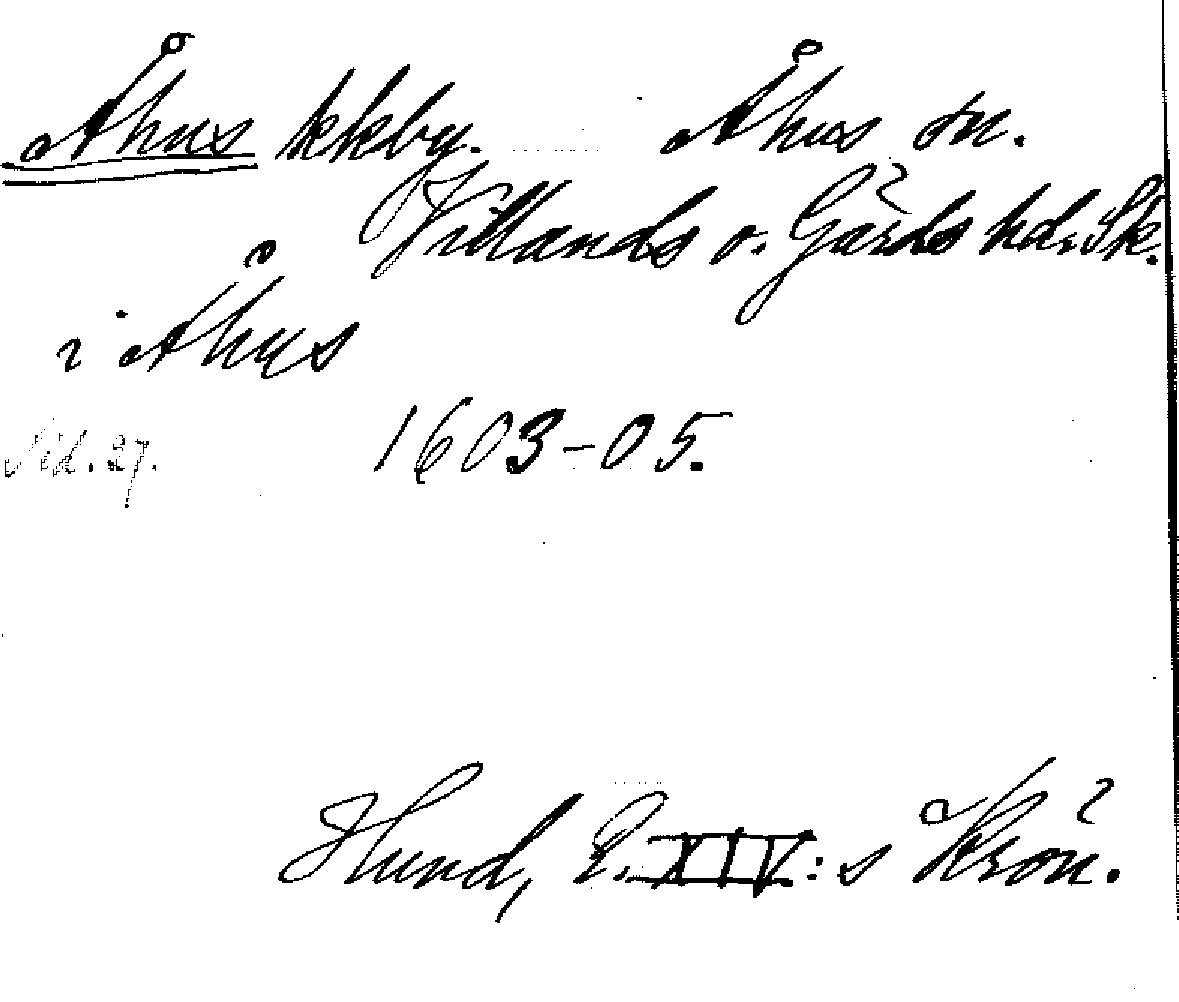 Åhus kkby. Åhus sn.
Villands o. Gärds hdr. Sk.
i Åhus
Sid. 27. 1603-05.
Hund, E. XIV:s Krön.